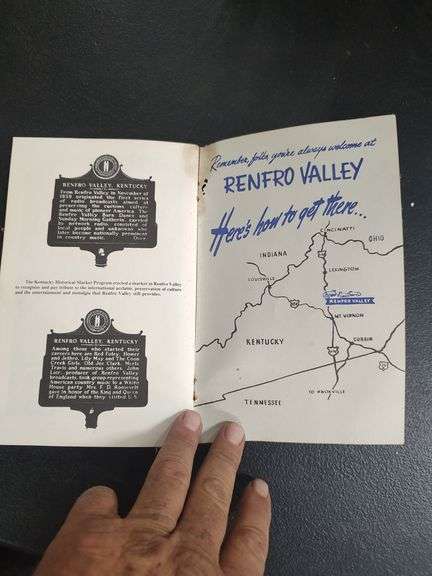 RENFRO VALLEY, KENTUCKY
From Renfro Valley in November of
1939 originated the first series
of radio broadcasts aimed at
preserving the customs, culture
and music of pioneer America. The
Renfro Valley Barn Dance and
Sunday Morning Gatherin, carried
by network radio, consisted of
local people and unknowns who
later became nationally prominent
in country music. Over
The Kentucky Historical Marker Program erected a marker in Renfro Valley
to recognize and pay tribute to the international acclaim, preservation of culture
and the entertainment and nostalgia that Renfro Valley still provides.
RENFRO VALLEY, KENTUCKY
Among those who started their
careers here are Red Foley, Homer
and Jethro, Lily May and The Coon
Creek Girls, Old Joe Clark, Merle
Travis and numerous others. John
Lair, producer of Renfro Valley
broadcasts, took group representing
American country music to a White
House party Mrs. F. D. Roosevelt
gave in honor of the King and Queen
of England when they visited U.S.
Remember, folks, you're always welcome at
RENFRO VALLEY
Here's how to get there...
CINCINNATI
OHIO
INDIANA
LEXINGTON
LOUISVILLE
RENFRO VALLEY
MT. VERNON
KENTUCKY
CORBIN
TENNESSEE
TO KNOXVILLE